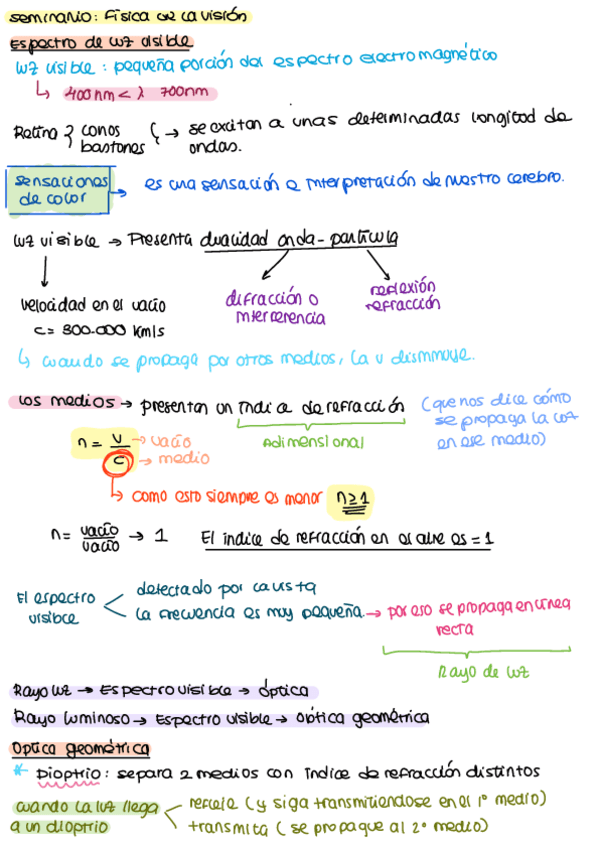 seminario: Física de la visión
Espectro de luz visible
luz visible: pequeña porción del espectro electromagnético
↳ 400nm < λ 700nm
Retina } conos { → se excitan a unas determinadas longitud de
bastones ondas.
sensaciones → es una sensación e interpretación de nuestro cerebro.
de color
luz visible → Presenta dualidad onda-partícula
velocidad en el vacío difracción o reflexión
c = 300.000 km/s interferencia refracción
↳ cuando se propaga por otros medios, la v disminuye.
los medios → presentan un índice de refracción (que nos dice cómo
se propaga la luz
en ese medio)
Adimensional
n = v → vacío
c → medio
↳ como esto siempre es menor n≥1
n = vacío → 1 El índice de refracción en el aire es = 1
vacío
El espectro < detectado por la vista
visible la frecuencia es muy pequeña. → por eso se propaga en línea
recta
Rayo de luz
Rayo luz → Espectro visible → óptica
Rayo luminoso → Espectro visible → óptica geométrica
Optica geométrica
* Dioptrio: separa 2 medios con índice de refracción distintos
cuando la luz llega < refleje (y siga transmitiendose en el 1º medio)
a un dioptrio transmita (se propague al 2º medio)